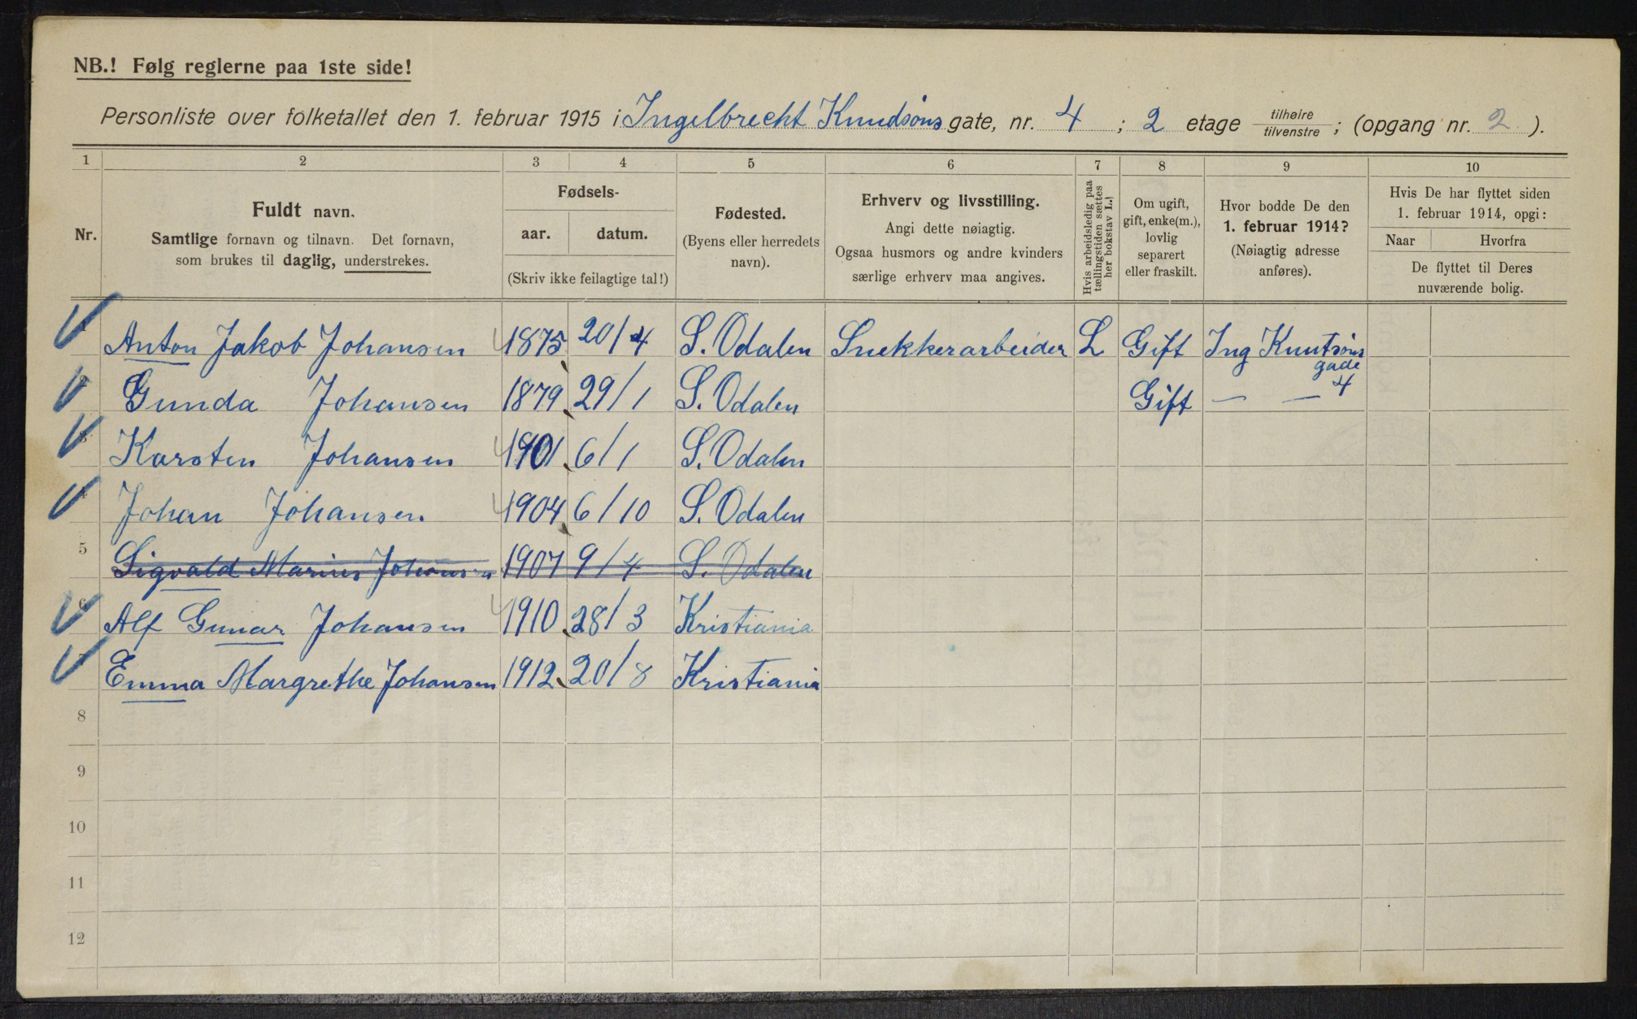 NB.! Følg reglerne paa 1ste side!
Personliste over folketallet den 1. februar 1915 i Ingelbrecht Knudsöns gate, nr. 4 ; 2 etage tilhøire tilvenstre ; (opgang nr. 2 ).
1 2 3 4 5 6 7 8 9 10
Nr.
Fuldt navn.
Samtlige fornavn og tilnavn. Det fornavn,
som brukes til daglig, understrekes.
Fødsels-
aar. datum.
(Skriv ikke feilagtige tal!)
Fødested.
(Byens eller herredets
navn).
Erhverv og livsstilling.
Angi dette nøiagtig.
Ogsaa husmors og andre kvinders
særlige erhverv maa angives.
Hvis arbeidsledig paa
tællingstiden sættes
her bokstav L.!
Om ugift,
gift, enke(m.),
lovlig
separert
eller fraskilt.
Hvor bodde De den
1. februar 1914?
(Nøiagtig adresse
anføres).
Hvis De har flyttet siden
1. februar 1914, opgi:
Naar Hvorfra
De flyttet til Deres
nuværende bolig.
Anton Jakob Johansen 1875 20/4 S. Odalen Snekkerarbeider L Gift Ing Knutsöns
gade
4
Gunda Johansen 1879 29/1 S. Odalen Gift — —
3 Karsten Johansen 1901 6/1 S. Odalen
4 Johan Johansen 1904 6/10 S. Odalen
5 Sigvald Marius Johansen 1907 9/4 S. Odalen
6 Alf Gunar Johansen 1910 28/3 Kristiania
7 Emma Margrethe Johansen 1912 20/8 Kristiania
8
9
10
11
12